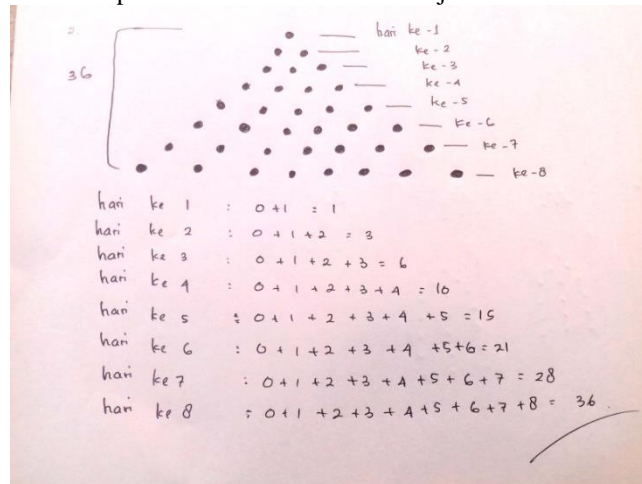 2.
hari ke-1
ke-2
ke-3
36
ke-4
ke-5
ke-6
ke-7
ke-8
hari ke 1 : 0+1 = 1
hari ke 2 : 0+1+2 = 3
hari ke 3 : 0+1+2+3 = 6
hari ke 4 : 0+1+2+3+4 = 10
hari ke 5 : 0+1+2+3+4+5 = 15
hari ke 6 : 0+1+2+3+4+5+6 = 21
hari ke 7 : 0+1+2+3+4+5+6+7 = 28
hari ke 8 : 0+1+2+3+4+5+6+7+8 = 36